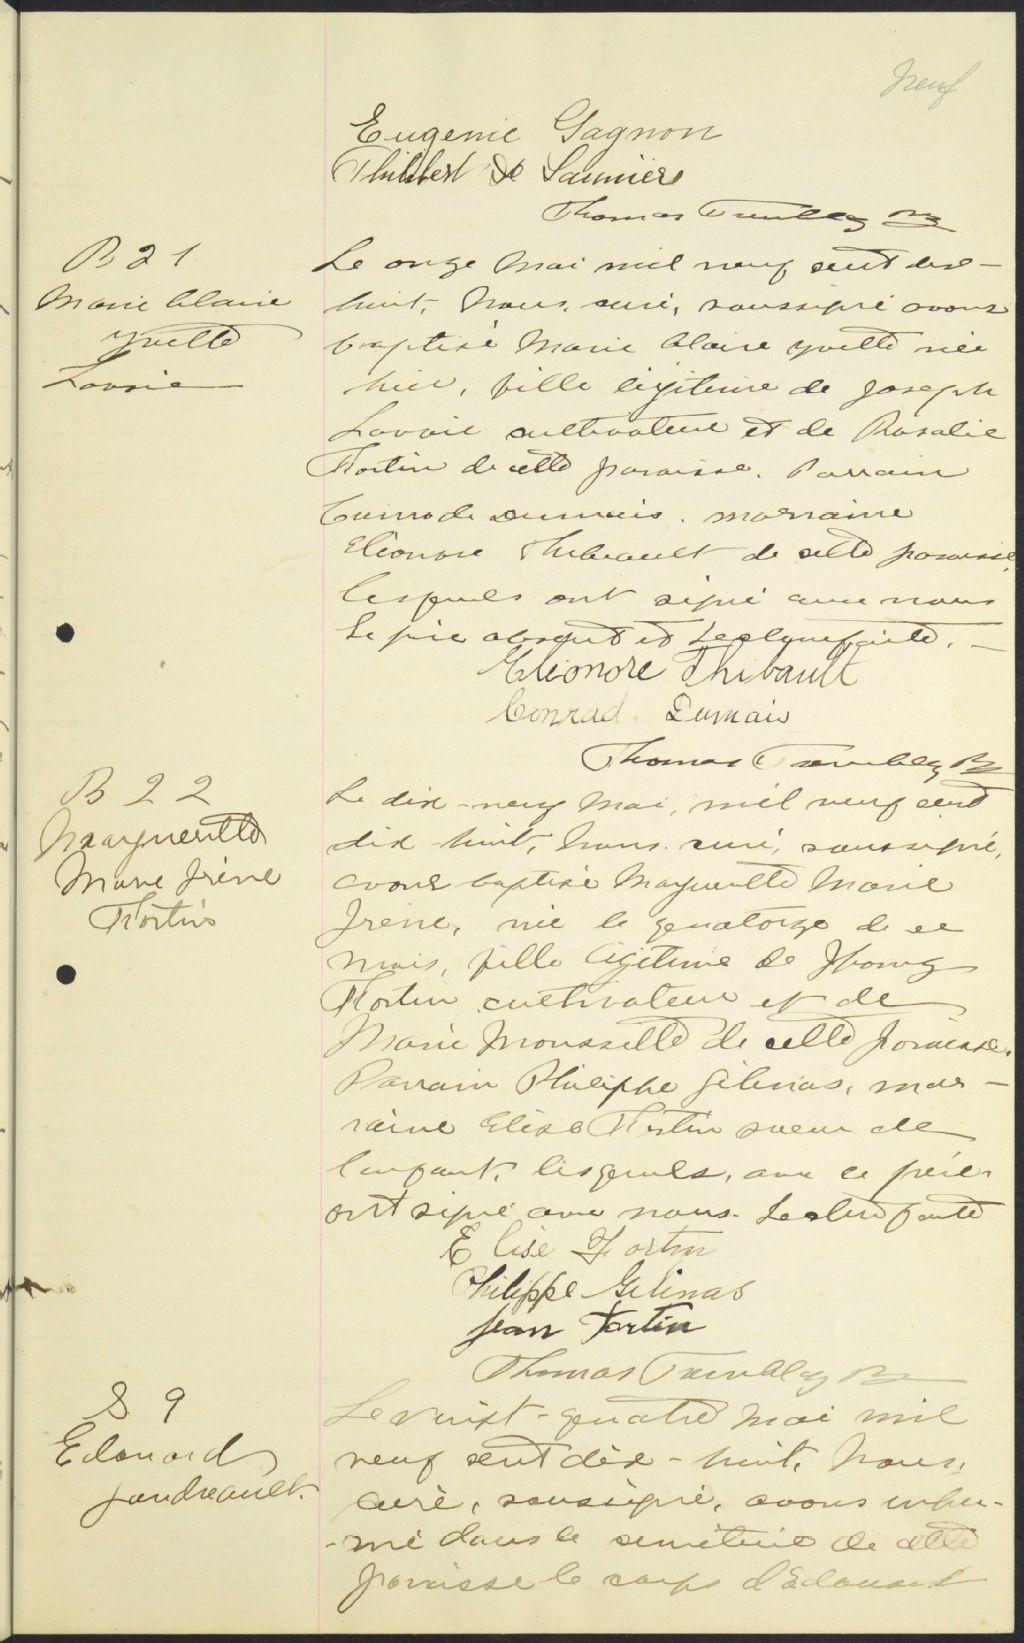 Neuf
Eugenie Gagnon
Philibert St Saunier
Thomas Tremblay Ptr
B 21
Marie Claire
Yvette
Lavoie
Le onze Mai mil neuf cent dix-
huit, Nous, curé, soussigné avons
baptisé Marie Claire Yvette née
hier, fille légitime de Joseph
Lavoie cultivateur et de Rosalie
Fortin de cette paroisse. Parrain
Conrad Dumais. marraine
Eléonore Thibeault de cette paroisse,
lesquels ont signé avec nous
le père absent et Lecture faite. —
Eléonore Thibault
Conrad Dumais
Thomas Tremblay Ptr
B 22
Margueritte
Marie Irène
Fortin
Le dix-neuf Mai, mil neuf cent
dix-huit, Nous, curé, soussigné,
avons baptisé Marguerite Marie
Irène, née le quatorze de ce
mois, fille légitime de
Fortin cultivateur et de
Marie Moussette de cette paroisse.
Parrain Philippe Gélinas, mar-
raine Elise Fortin soeur de
l'enfant, lesquels, avec le père
ont signé avec nous. Lecture faite
Elise Fortin
Philippe Gelinas
Jean Fortin
Thomas Tremblay Ptr
S 9
Edouard
Gaudreault.
Le vingt-quatre Mai mil
neuf cent dix-huit, Nous,
curé, soussigné, avons inhu-
-mé dans le cimetière de cette
paroisse le corps d'Edouard